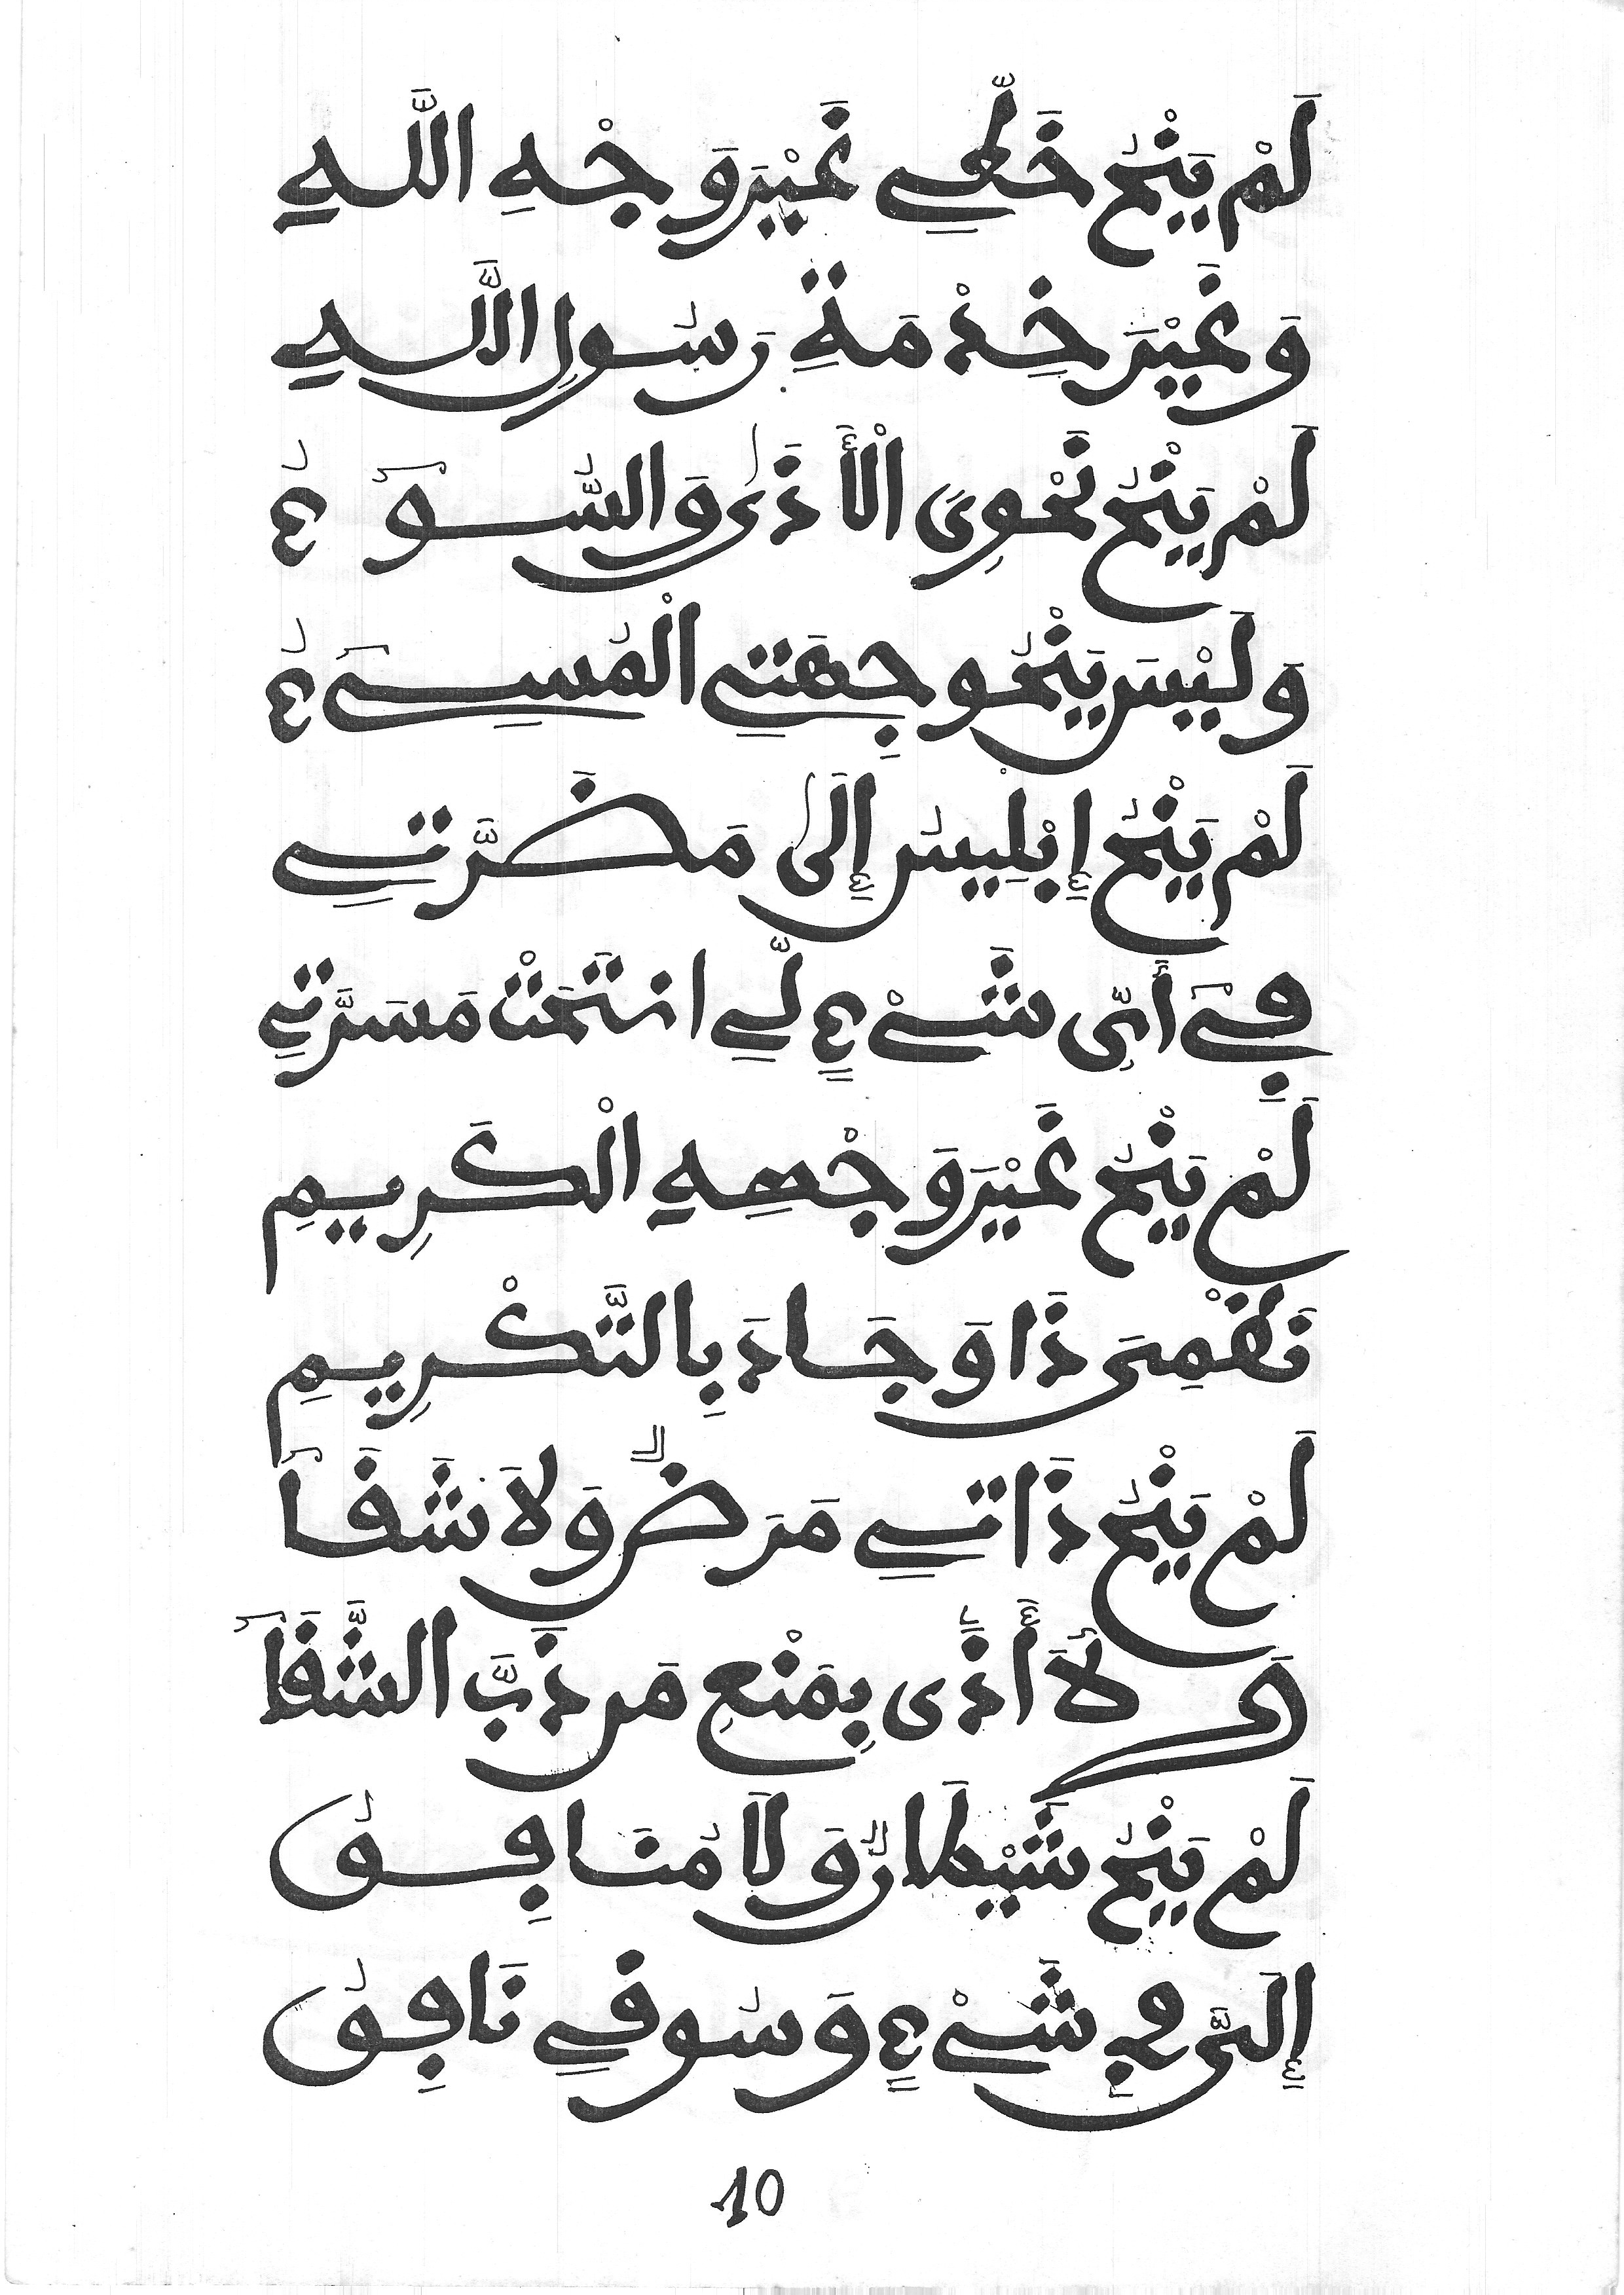 لَمْ يَنْحُ خَطِّي غَيْرَ وَجْهِ اللَّهِ
وَغَيْرَ خِدْمَةِ رَسُولِ اللَّهِ
لَمْ يَنْحُ نَحْوِيَ الْأَذَى وَالسُّوءُ
وَلَيْسَ يَنْحُو جِهَتِي الْمُسِيءُ
لَمْ يَنْحُ إِبْلِيسُ إِلَى مَضَرَّتِي
فِي أَيِّ شَيْءٍ لِّي انْتَحَتْ مَسَرَّتِي
لَمْ يَنْحُ غَيْرَ وَجْهِهِ الْكَرِيمِ
نَظْمِيَ ذَا وَجَادَ بِالتَّكْرِيمِ
لَمْ يَنْحُ ذَاتِي مَرَضٌ وَلَا شَفَا
لَا أَذًى بِمَنْعِ مَن ذَبَّ الشَّفَا
لَمْ يَنْحُ شَيْطَانٌ وَلَا مُنَافِقُ
إِلَيَّ فِي شَيْءٍ وَسُوقِي نَافِقُ
10